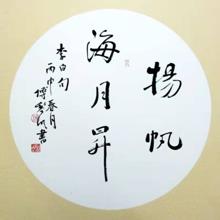 揚帆
海月昇
李白句
丙申春月
博
書